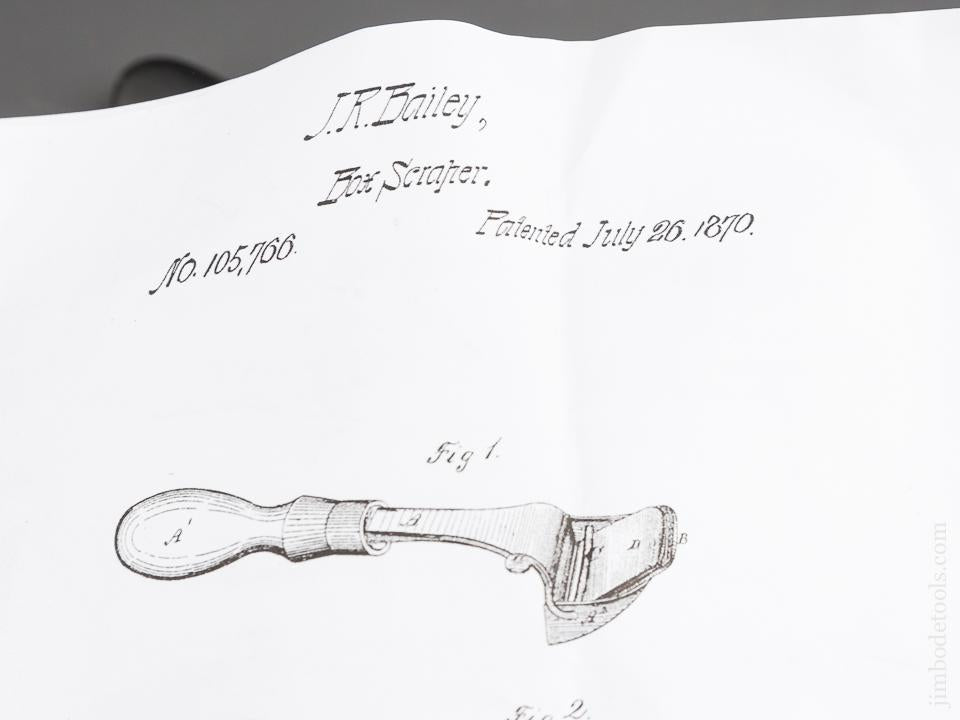 J. R. Bailey,
Box Scraper.
Patented July 26. 1870.
No. 105,766.
Fig 1.
A'
B
D
B
Fig 2.
jimbodetools.com